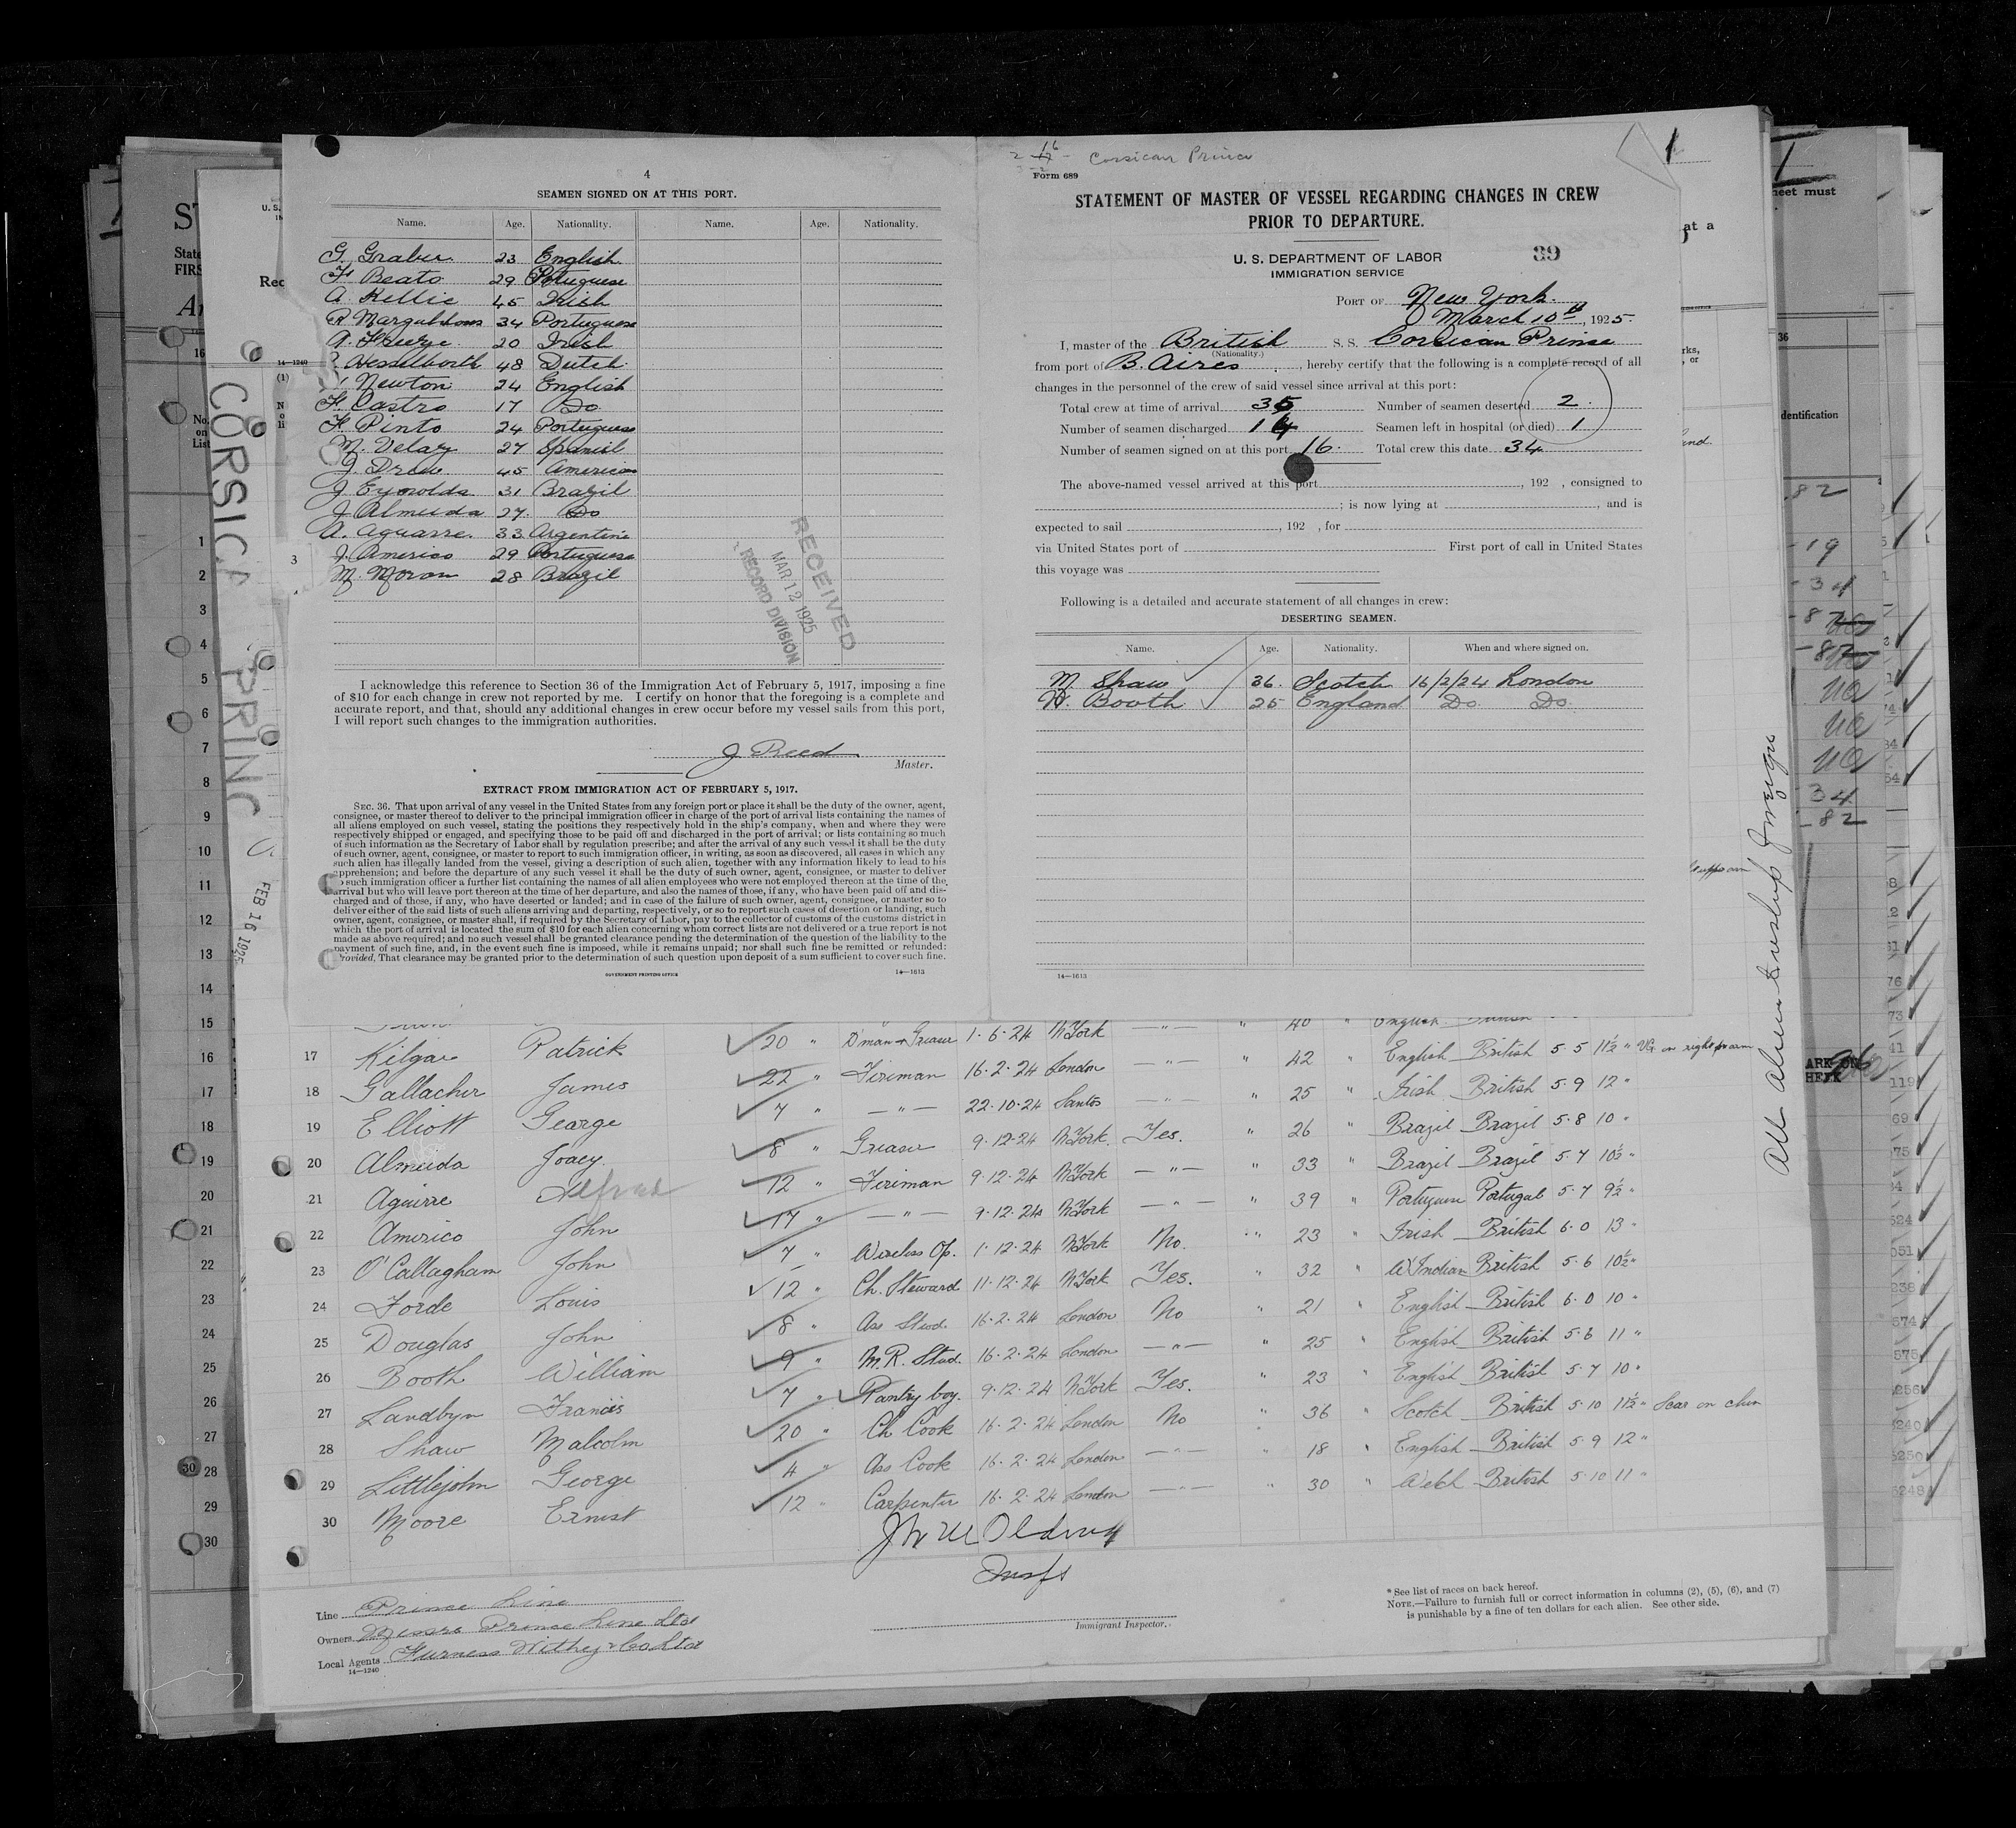 4
SEAMEN SIGNED ON AT THIS PORT.
Name. Age. Nationality. Name. Age. Nationality.
G. Graber 23 English
F. Beato 29 Portuguese
A. Kellie 45 Irish
34 Portuguese
A. 20 Irish
Wesselborth 48 Dutch
Newton 24 English
F. Castro 17 Do
F. Pinto 24 Portuguese
M. Delay 27 Spanish
J. Drew 45 American
J. Eynolds 31 Brazil
J. Almeida 27. Do
A. Aguarre. 33 Argentine
J. Americo 29 Portuguese
M. Moran 28 Brazil
RECEIVED
MAR 12 1925
RECORD DIVISION
I acknowledge this reference to Section 36 of the Immigration Act of February 5, 1917, imposing a fine
of $10 for each change in crew not reported by me. I certify on honor that the foregoing is a complete and
accurate report, and that, should any additional changes in crew occur before my vessel sails from this port,
I will report such changes to the immigration authorities.
J Reed
Master.
EXTRACT FROM IMMIGRATION ACT OF FEBRUARY 5, 1917.
SEC. 36. That upon arrival of any vessel in the United States from any foreign port or place it shall be the duty of the owner, agent,
consignee, or master thereof to deliver to the principal immigration officer in charge of the port of arrival lists containing the names of
all aliens employed on such vessel, stating the positions they respectively hold in the ship's company, when and where they were
respectively shipped or engaged, and specifying those to be paid off and discharged in the port of arrival; or lists containing so much
of such information as the Secretary of Labor shall by regulation prescribe; and after the arrival of any such vessel it shall be the duty
of such owner, agent, consignee, or master to report to such immigration officer, in writing, as soon as discovered, all cases in which any
such alien has illegally landed from the vessel, giving a description of such alien, together with any information likely to lead to his
apprehension; and before the departure of any such vessel it shall be the duty of such owner, agent, consignee, or master to deliver
to such immigration officer a further list containing the names of all alien employees who were not employed thereon at the time of the
arrival but who will leave port thereon at the time of her departure, and also the names of those, if any, who have been paid off and dis-
charged and of those, if any, who have deserted or landed; and in case of the failure of such owner, agent, consignee, or master so to
deliver either of the said lists of such aliens arriving and departing, respectively, or so to report such cases of desertion or landing, such
owner, agent, consignee, or master shall, if required by the Secretary of Labor, pay to the collector of customs of the customs district in
which the port of arrival is located the sum of $10 for each alien concerning whom correct lists are not delivered or a true report is not
made as above required; and no such vessel shall be granted clearance pending the determination of the question of the liability to the
payment of such fine, and, in the event such fine is imposed, while it remains unpaid; nor shall such fine be remitted or refunded:
Provided, That clearance may be granted prior to the determination of such question upon deposit of a sum sufficient to cover such fine.
GOVERNMENT PRINTING OFFICE 14—1613
Corsican Prince
Form 689
STATEMENT OF MASTER OF VESSEL REGARDING CHANGES IN CREW
PRIOR TO DEPARTURE.
U. S. DEPARTMENT OF LABOR
IMMIGRATION SERVICE
39
PORT OF New York.
March 10th, 1925.
I, master of the British S. S. Corsican Prince
(Nationality.)
from port of B. Aires, hereby certify that the following is a complete record of all
changes in the personnel of the crew of said vessel since arrival at this port:
Total crew at time of arrival 35 Number of seamen deserted 2.
Number of seamen discharged 14 Seamen left in hospital (or died) 1
Number of seamen signed on at this port 16. Total crew this date 34
The above-named vessel arrived at this port , 192 , consigned to
; is now lying at , and is
expected to sail , 192 , for
via United States port of First port of call in United States
this voyage was
Following is a detailed and accurate statement of all changes in crew:
DESERTING SEAMEN.
Name. Age. Nationality. When and where signed on.
M. Shaw 36. Scotch 16/2/24 London
W. Booth 25 England Do. Do.
14—1613
CORSICAN PRINCE
FEB 16 1925
17 Kilgar Patrick 20 " D'man & Greaser 1.6.24 N York —"— " 40 " English
18 Gallacher James 22 " Fireman 16.2.24 London —"— " 42 " English British 5.5 11½ " on right forearm
19 Elliott George 7 " —"— 22.10.24 Santos —"— " 25 " Irish British 5.9 12 "
20 Almeida Joaey 8 " Greaser 9.12.24 N York. Yes. " 26 " Brazil Brazil 5.8 10 "
21 Aguirre Alfred 12 " Fireman 9.12.24 N York —"— " 33 " Brazil Brazil 5.7 10½ "
22 Americo John 17 " —"— 9.12.24 N York —"— " 39 " Portuguese Portugal 5.7 9½ "
23 O'Callagham John 7 " Wireless Op. 1.12.24 N York No. " 23 " Irish British 6.0 13 "
24 Forde Louis 12 " Ch. Steward 11.12.24 N York Yes. " 32 " W Indian British 5.6 10½ "
25 Douglas John 8 " Ass Stwd. 16.2.24 London No " 21 " English British 6.0 10 "
26 Booth William 9 " M.R. Stwd. 16.2.24 London —"— " 25 " English British 5.6 11 "
27 Landbyn Francis 7 " Pantry boy. 9.12.24 N York Yes. " 23 " English British 5.7 10 "
28 Shaw Malcolm 20 " Ch Cook 16.2.24 London No " 36 " Scotch British 5.10 11½ " Scar on chin
29 Littlejohn George 4 " Ass Cook 16.2.24 London —"— " 18 " English British 5.9 12 "
30 Moore Ernest 12 " Carpenter 16.2.24 London —"— " 30 " Welch British 5.10 11 "
Line Prince Line
Owners Messrs Prince Line Ltd
Local Agents Furness Withey & Co Ltd
14—1240
Immigrant Inspector.
* See list of races on back hereof.
NOTE.—Failure to furnish full or correct information in columns (2), (5), (6), and (7)
is punishable by a fine of ten dollars for each alien. See other side.